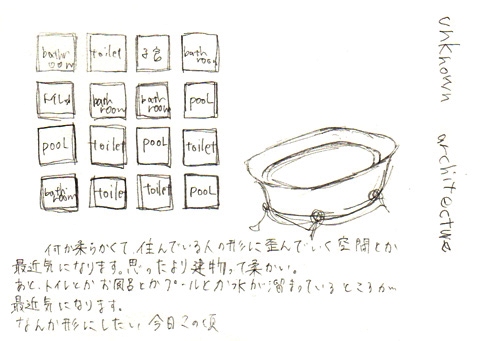 unknown architecture
bath room toilet 子宮 bath room
bath room bath room pool
pool toilet pool toilet
bath room toilet toilet pool
何か柔らかくて、住んでいる人の形に歪んでいく空間とか
最近気になります。思ったより建物って柔かい。
あと、トイレとかお風呂とかプールとか水が溜まっているところが、
最近気になります。
なんか形にしたい今日この頃